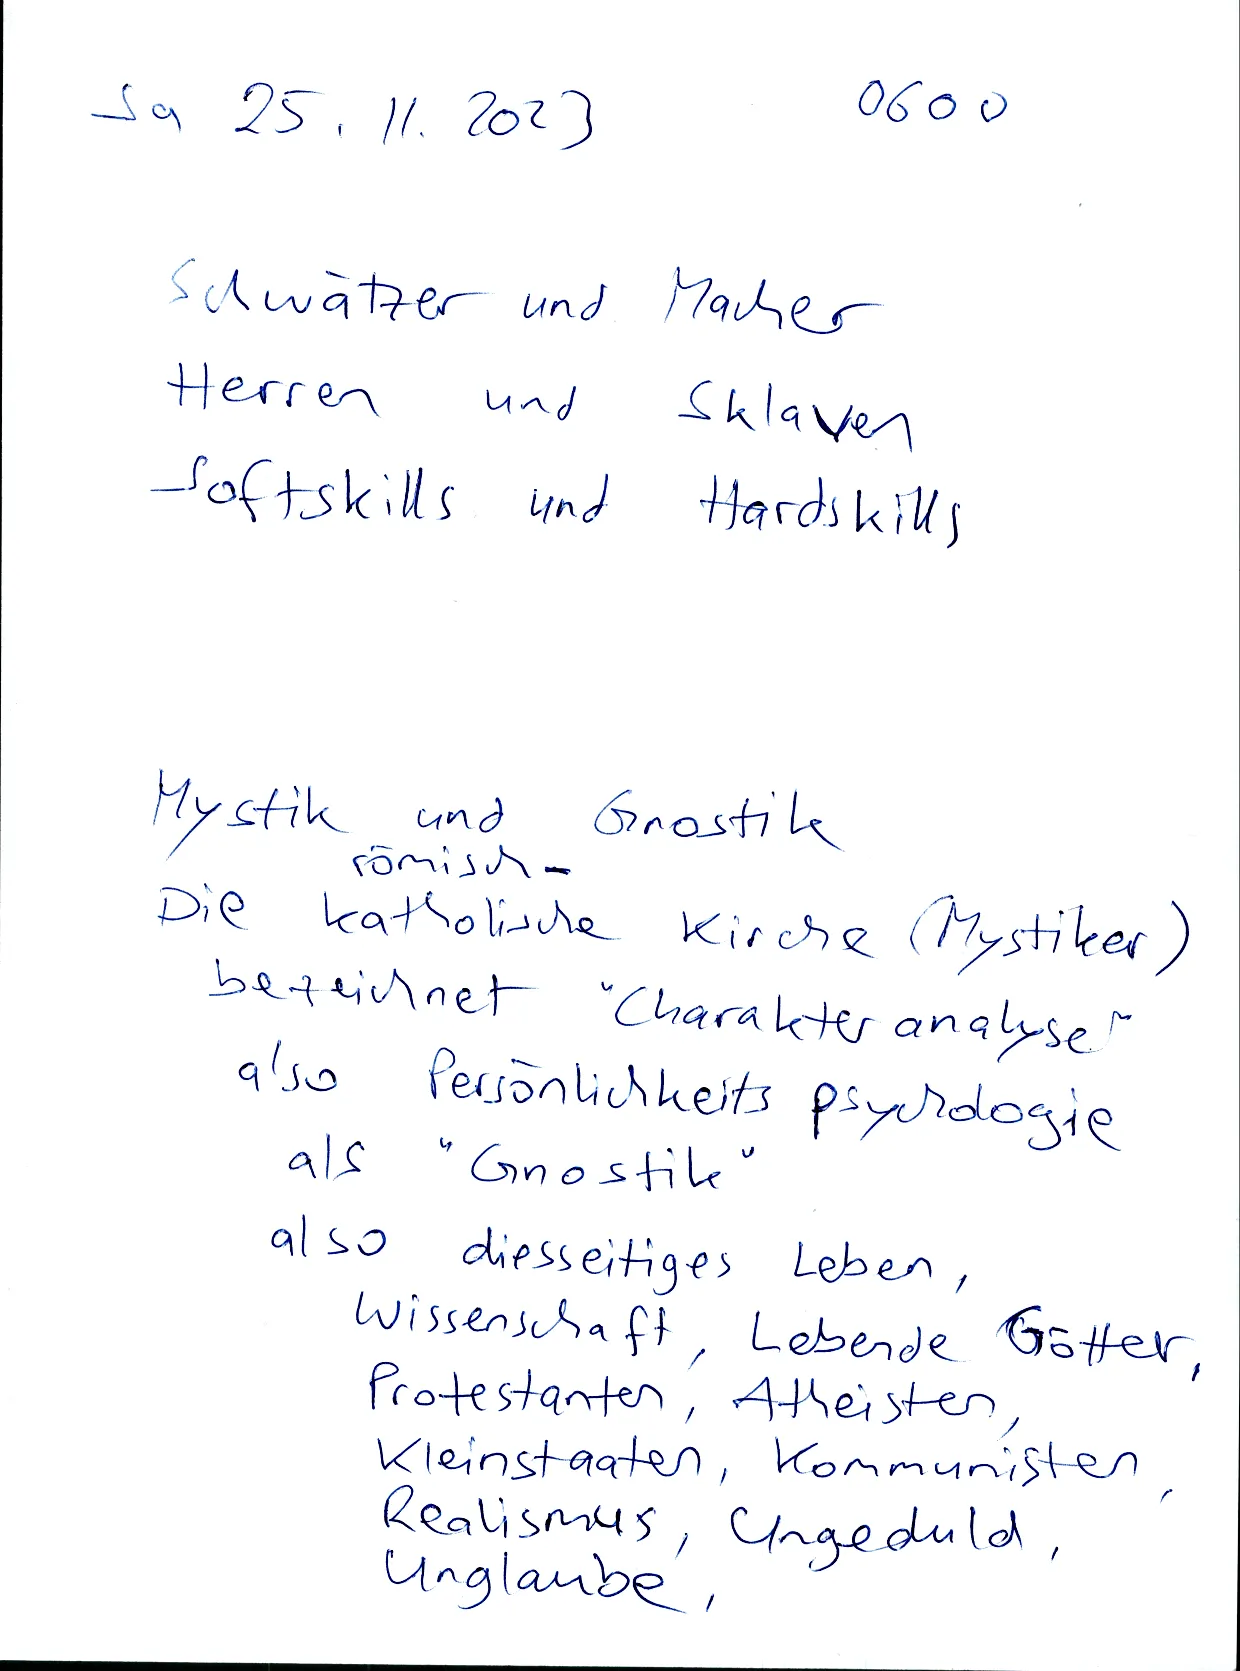 Sa 25. 11. 2023 0600
Schwätzer und Macher
Herren und Sklaven
Softskills und Hardskills
Mystik und Gnostik
römisch-
Die katholische Kirche (Mystiker)
bezeichnet "Charakteranalyse"
also Persönlichkeitspsychologie
als "Gnostik"
also diesseitiges Leben,
Wissenschaft, Lebende Götter,
Protestanten, Atheisten,
Kleinstaaten, Kommunisten,
Realismus, Ungeduld,
Unglaube,